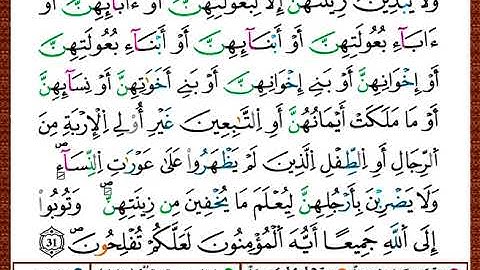 وَلَا يُبْدِينَ زِينَتَهُنَّ إِلَّا لِبُعُولَتِهِنَّ أَوْ ءَابَآئِهِنَّ أَوْ
ءَابَآءِ بُعُولَتِهِنَّ أَوْ أَبْنَآئِهِنَّ أَوْ أَبْنَآءِ بُعُولَتِهِنَّ
أَوْ إِخْوَٰنِهِنَّ أَوْ بَنِىٓ إِخْوَٰنِهِنَّ أَوْ بَنِىٓ أَخَوَٰتِهِنَّ أَوْ نِسَآئِهِنَّ
أَوْ مَا مَلَكَتْ أَيْمَٰنُهُنَّ أَوِ ٱلتَّٰبِعِينَ غَيْرِ أُو۟لِى ٱلْإِرْبَةِ مِنَ
ٱلرِّجَالِ أَوِ ٱلطِّفْلِ ٱلَّذِينَ لَمْ يَظْهَرُوا۟ عَلَىٰ عَوْرَٰتِ ٱلنِّسَآءِ ۖ
وَلَا يَضْرِبْنَ بِأَرْجُلِهِنَّ لِيُعْلَمَ مَا يُخْفِينَ مِن زِينَتِهِنَّ ۚ وَتُوبُوٓا۟
إِلَى ٱللَّهِ جَمِيعًا أَيُّهَ ٱلْمُؤْمِنُونَ لَعَلَّكُمْ تُفْلِحُونَ 31